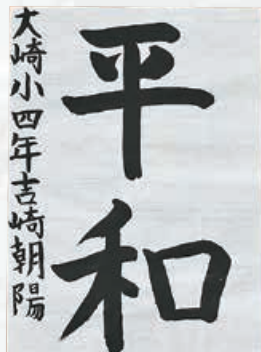 平和
大崎小四年吉崎朝陽